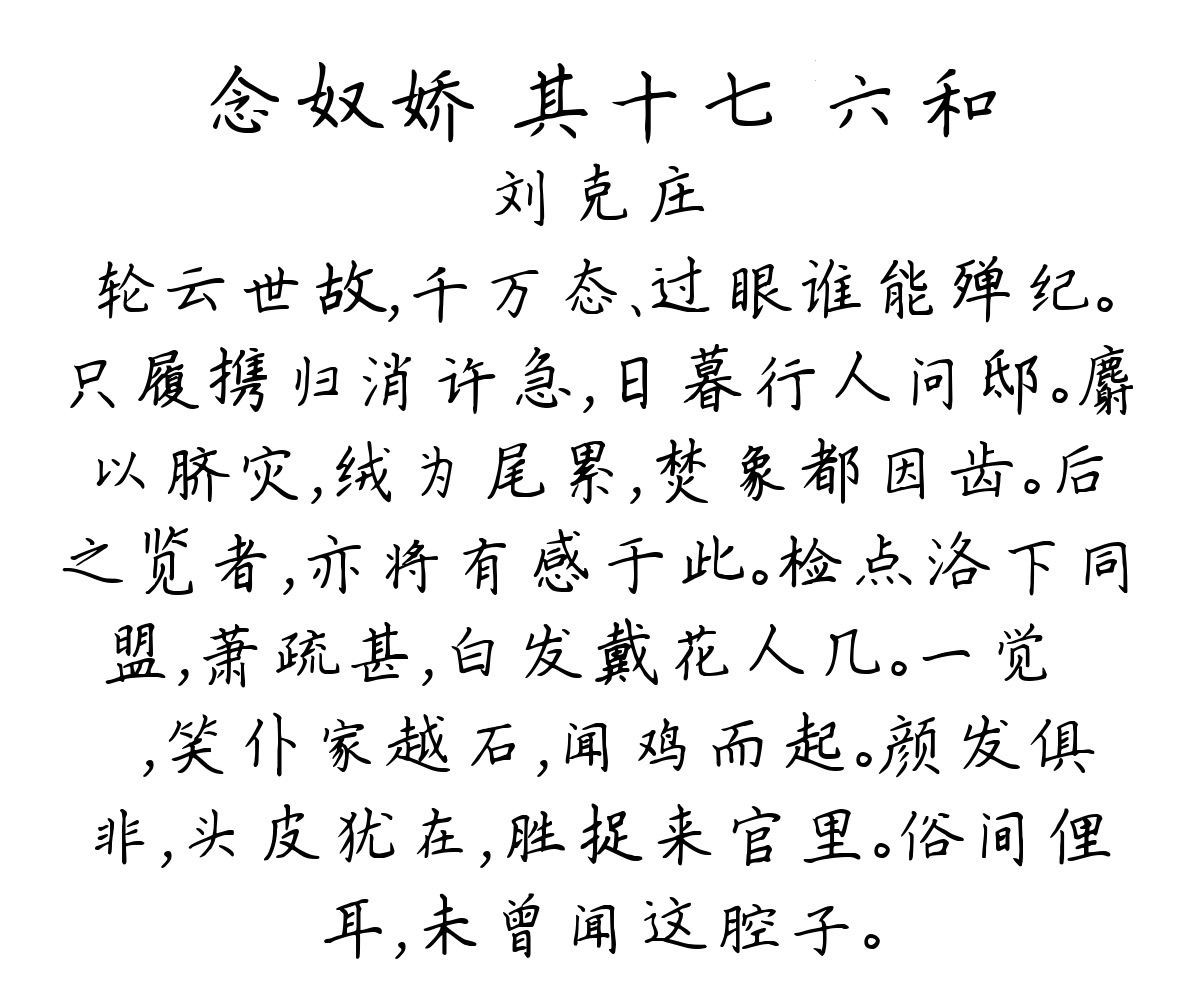 念奴娇 其十七 六和
刘克庄
轮云世故,千万态、过眼谁能殚纪。
只履携归消许急,日暮行人问邸。麝
以脐灾,绒为尾累,焚象都因齿。后
之览者,亦将有感于此。检点洛下同
盟,萧疏甚,白发戴花人几。一觉
,笑仆家越石,闻鸡而起。颜发俱
非,头皮犹在,胜捉来官里。俗间俚
耳,未曾闻这腔子。